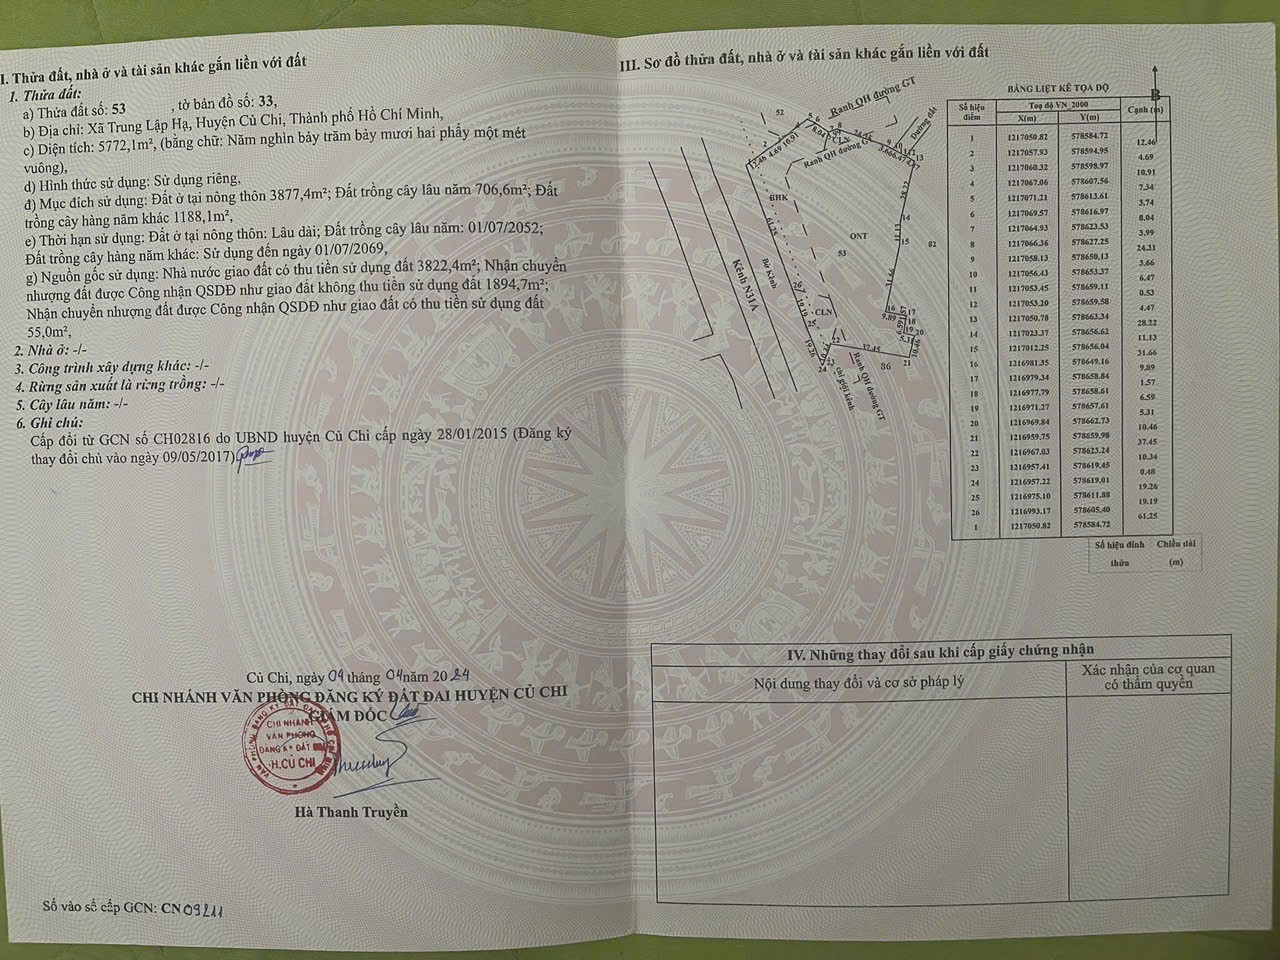 I. Thửa đất, nhà ở và tài sản khác gắn liền với đất
1. Thửa đất:
a) Thửa đất số: 53 , tờ bản đồ số: 33,
b) Địa chỉ: Xã Trung Lập Hạ, Huyện Củ Chi, Thành phố Hồ Chí Minh,
c) Diện tích: 5772,1m², (bằng chữ: Năm nghìn bảy trăm bảy mươi hai phẩy một mét
vuông),
d) Hình thức sử dụng: Sử dụng riêng,
đ) Mục đích sử dụng: Đất ở tại nông thôn 3877,4m²; Đất trồng cây lâu năm 706,6m²; Đất
trồng cây hàng năm khác 1188,1m²,
e) Thời hạn sử dụng: Đất ở tại nông thôn: Lâu dài; Đất trồng cây lâu năm: 01/07/2052;
Đất trồng cây hàng năm khác: Sử dụng đến ngày 01/07/2069,
g) Nguồn gốc sử dụng: Nhà nước giao đất có thu tiền sử dụng đất 3822,4m²; Nhận chuyển
nhượng đất được Công nhận QSDĐ như giao đất không thu tiền sử dụng đất 1894,7m²;
Nhận chuyển nhượng đất được Công nhận QSDĐ như giao đất có thu tiền sử dụng đất
55,0m²,
2. Nhà ở: -/-
3. Công trình xây dựng khác: -/-
4. Rừng sản xuất là rừng trồng: -/-
5. Cây lâu năm: -/-
6. Ghi chú:
Cấp đổi từ GCN số CH02816 do UBND huyện Củ Chi cấp ngày 28/01/2015 (Đăng ký
thay đổi chủ vào ngày 09/05/2017)
Củ Chi, ngày 04 tháng 04 năm 2024
CHI NHÁNH VĂN PHÒNG ĐĂNG KÝ ĐẤT ĐAI HUYỆN CỦ CHI
GIÁM ĐỐC
CHI NHÁNH
VĂN PHÒNG
ĐĂNG KÝ ĐẤT
H.CỦ CHI
Hà Thanh Truyền
Số vào sổ cấp GCN: CN 09211
III. Sơ đồ thửa đất, nhà ở và tài sản khác gắn liền với đất
B
52
Ranh QH đường GT
Đường đất
Ranh QH đường GT
CLN
BHK
ONT
53
82
Kênh N31A
Bờ Kênh
CLN
86
Ranh QH đường GT
chỉ giới kênh
BẢNG LIỆT KÊ TỌA ĐỘ
Số hiệu điểm Toạ độ VN_2000 Cạnh (m)
X(m) Y(m)
1 1217050.82 578584.72
12.46
2 1217057.93 578594.95
4.69
3 1217060.32 578598.97
10.91
4 1217067.06 578607.56
7.34
5 1217071.21 578613.61
3.74
6 1217069.57 578616.97
8.04
7 1217064.93 578623.53
3.99
8 1217066.36 578627.25
24.31
9 1217058.13 578650.13
3.66
10 1217056.43 578653.37
6.47
11 1217053.45 578659.11
0.53
12 1217053.20 578659.58
4.47
13 1217050.78 578663.34
28.22
14 1217023.37 578656.62
11.13
15 1217012.25 578656.04
31.66
16 1216981.35 578649.16
9.89
17 1216979.34 578658.84
1.57
18 1216977.79 578658.61
6.59
19 1216971.27 578657.61
5.31
20 1216969.84 578662.73
10.46
21 1216959.75 578659.98
37.45
22 1216967.03 578623.24
10.34
23 1216957.41 578619.45
0.48
24 1216957.22 578619.01
19.26
25 1216975.10 578611.88
19.19
26 1216993.17 578605.40
61.25
1 1217050.82 578584.72
Số hiệu đỉnh thửa Chiều dài (m)
IV. Những thay đổi sau khi cấp giấy chứng nhận
Nội dung thay đổi và cơ sở pháp lý
Xác nhận của cơ quan
có thẩm quyền